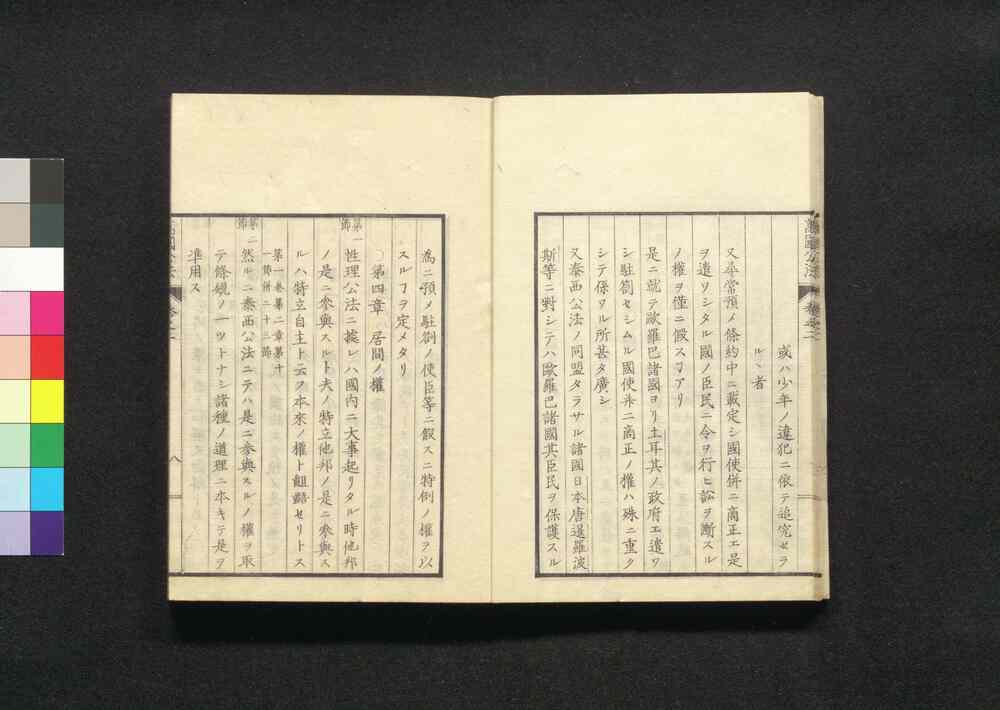 萬國公法 卷之二
或ハ少年ノ違犯ニ依テ追究セラ
ルヽ者
又尋常預メ條約中ニ載定シ國使併ニ商正エ是
ヲ遣リシタル國ノ臣民ニ令ヲ行ヒ訟ヲ斷スル
ノ權ヲ僅ニ假スヿアリ
是ニ就テ歐羅巴諸國ヨリ土耳其ノ政府エ遣ワ
シ駐劄セシムル國使并ニ商正ノ權ハ殊ニ重ク
シテ係ワル所甚タ廣シ
又泰西公法ノ同盟タラサル諸國日本唐暹羅波
斯等ニ對シテハ歐羅巴諸國其臣民ヲ保護スル
爲ニ預メ駐劄ノ使臣等ニ假スニ特例ノ權ヲ以
スルヿヲ定メタリ
〇第四章 居間ノ權
第一節
性理公法ニ據レハ國内ニ大事起リタル時他邦
ノ是ニ參與スルト夫ノ特立他邦ノ是ニ參與ス
ルハ特立自主ト云フ本來ノ權ト齟齬セリトス
第一卷第二章第十
一節併二十三節
第二節
然ルニ泰西公法ニテハ是ニ參與スルノ權ヲ取
テ條規ノ一ツトナシ諸種ノ道理ニ本キテ是ヲ
準用ス
八